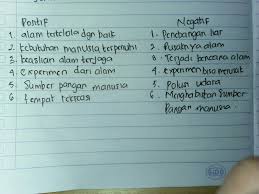 Positif Negatif
1. alam tertelola dgn baik 1. Penebangan liar
2. kebutuhan manusia terpenuhi 2. Rusaknya alam
3. keaslian alam terjaga 3. Terjadi bencana alam
4. experimen dari alam 4. experimen bisa merusak
5. Sumber pangan manusia 5. Polusi udara
6. tempat rekreasi 6. Menghabiskan Sumber
Pangan manusia.
SIDU